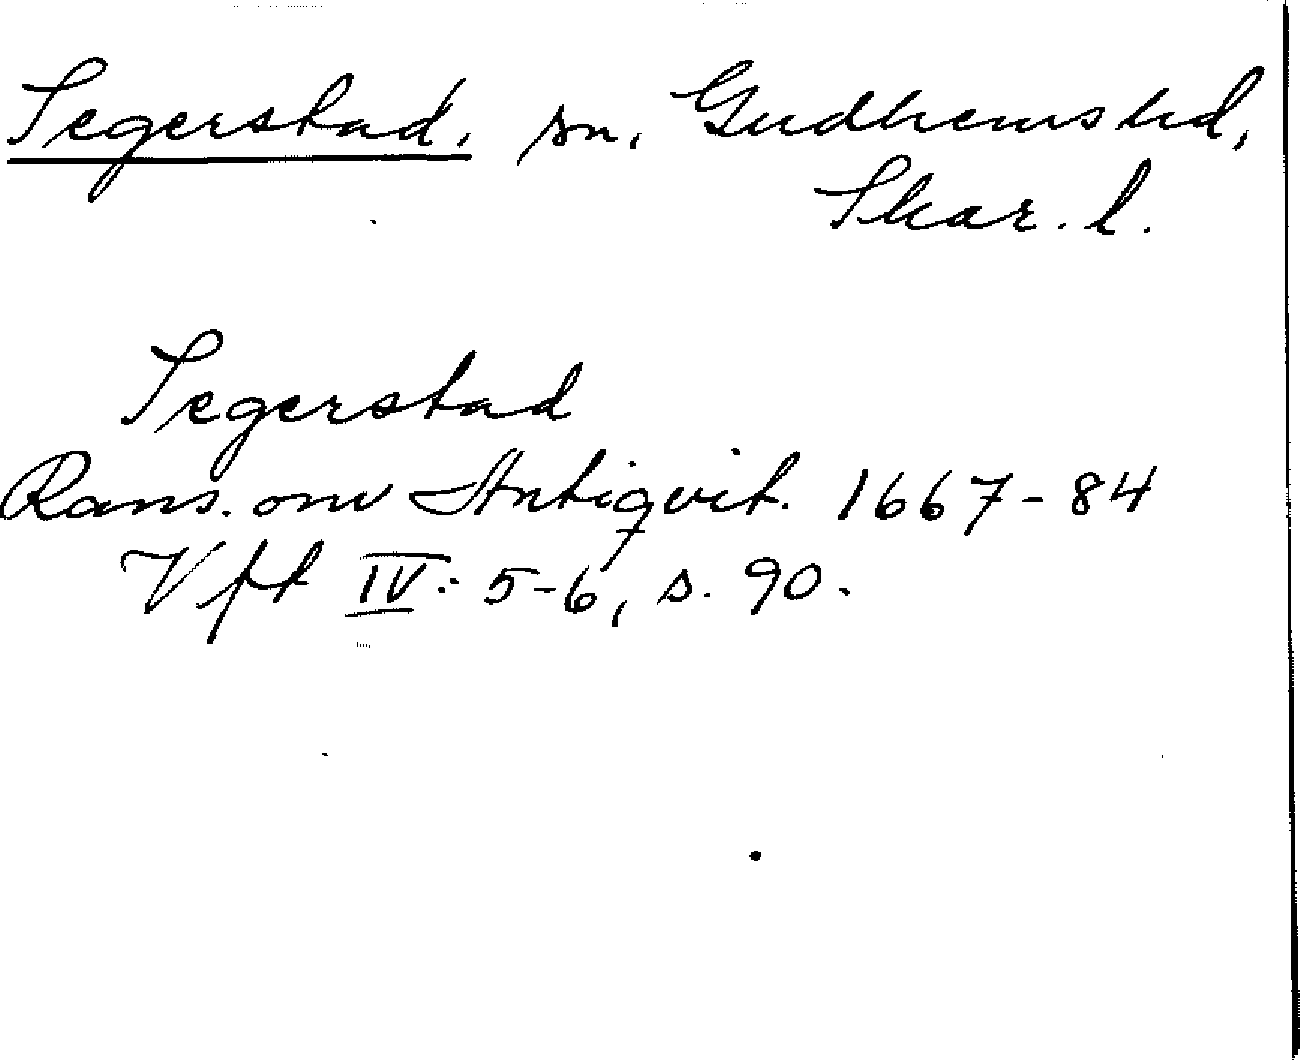 Segerstad. sn. Gudhems hd,
Skar. l.
Segerstad
Rans. om Antiqvit. 1667-84
Vft IV: 5-6, s. 90.